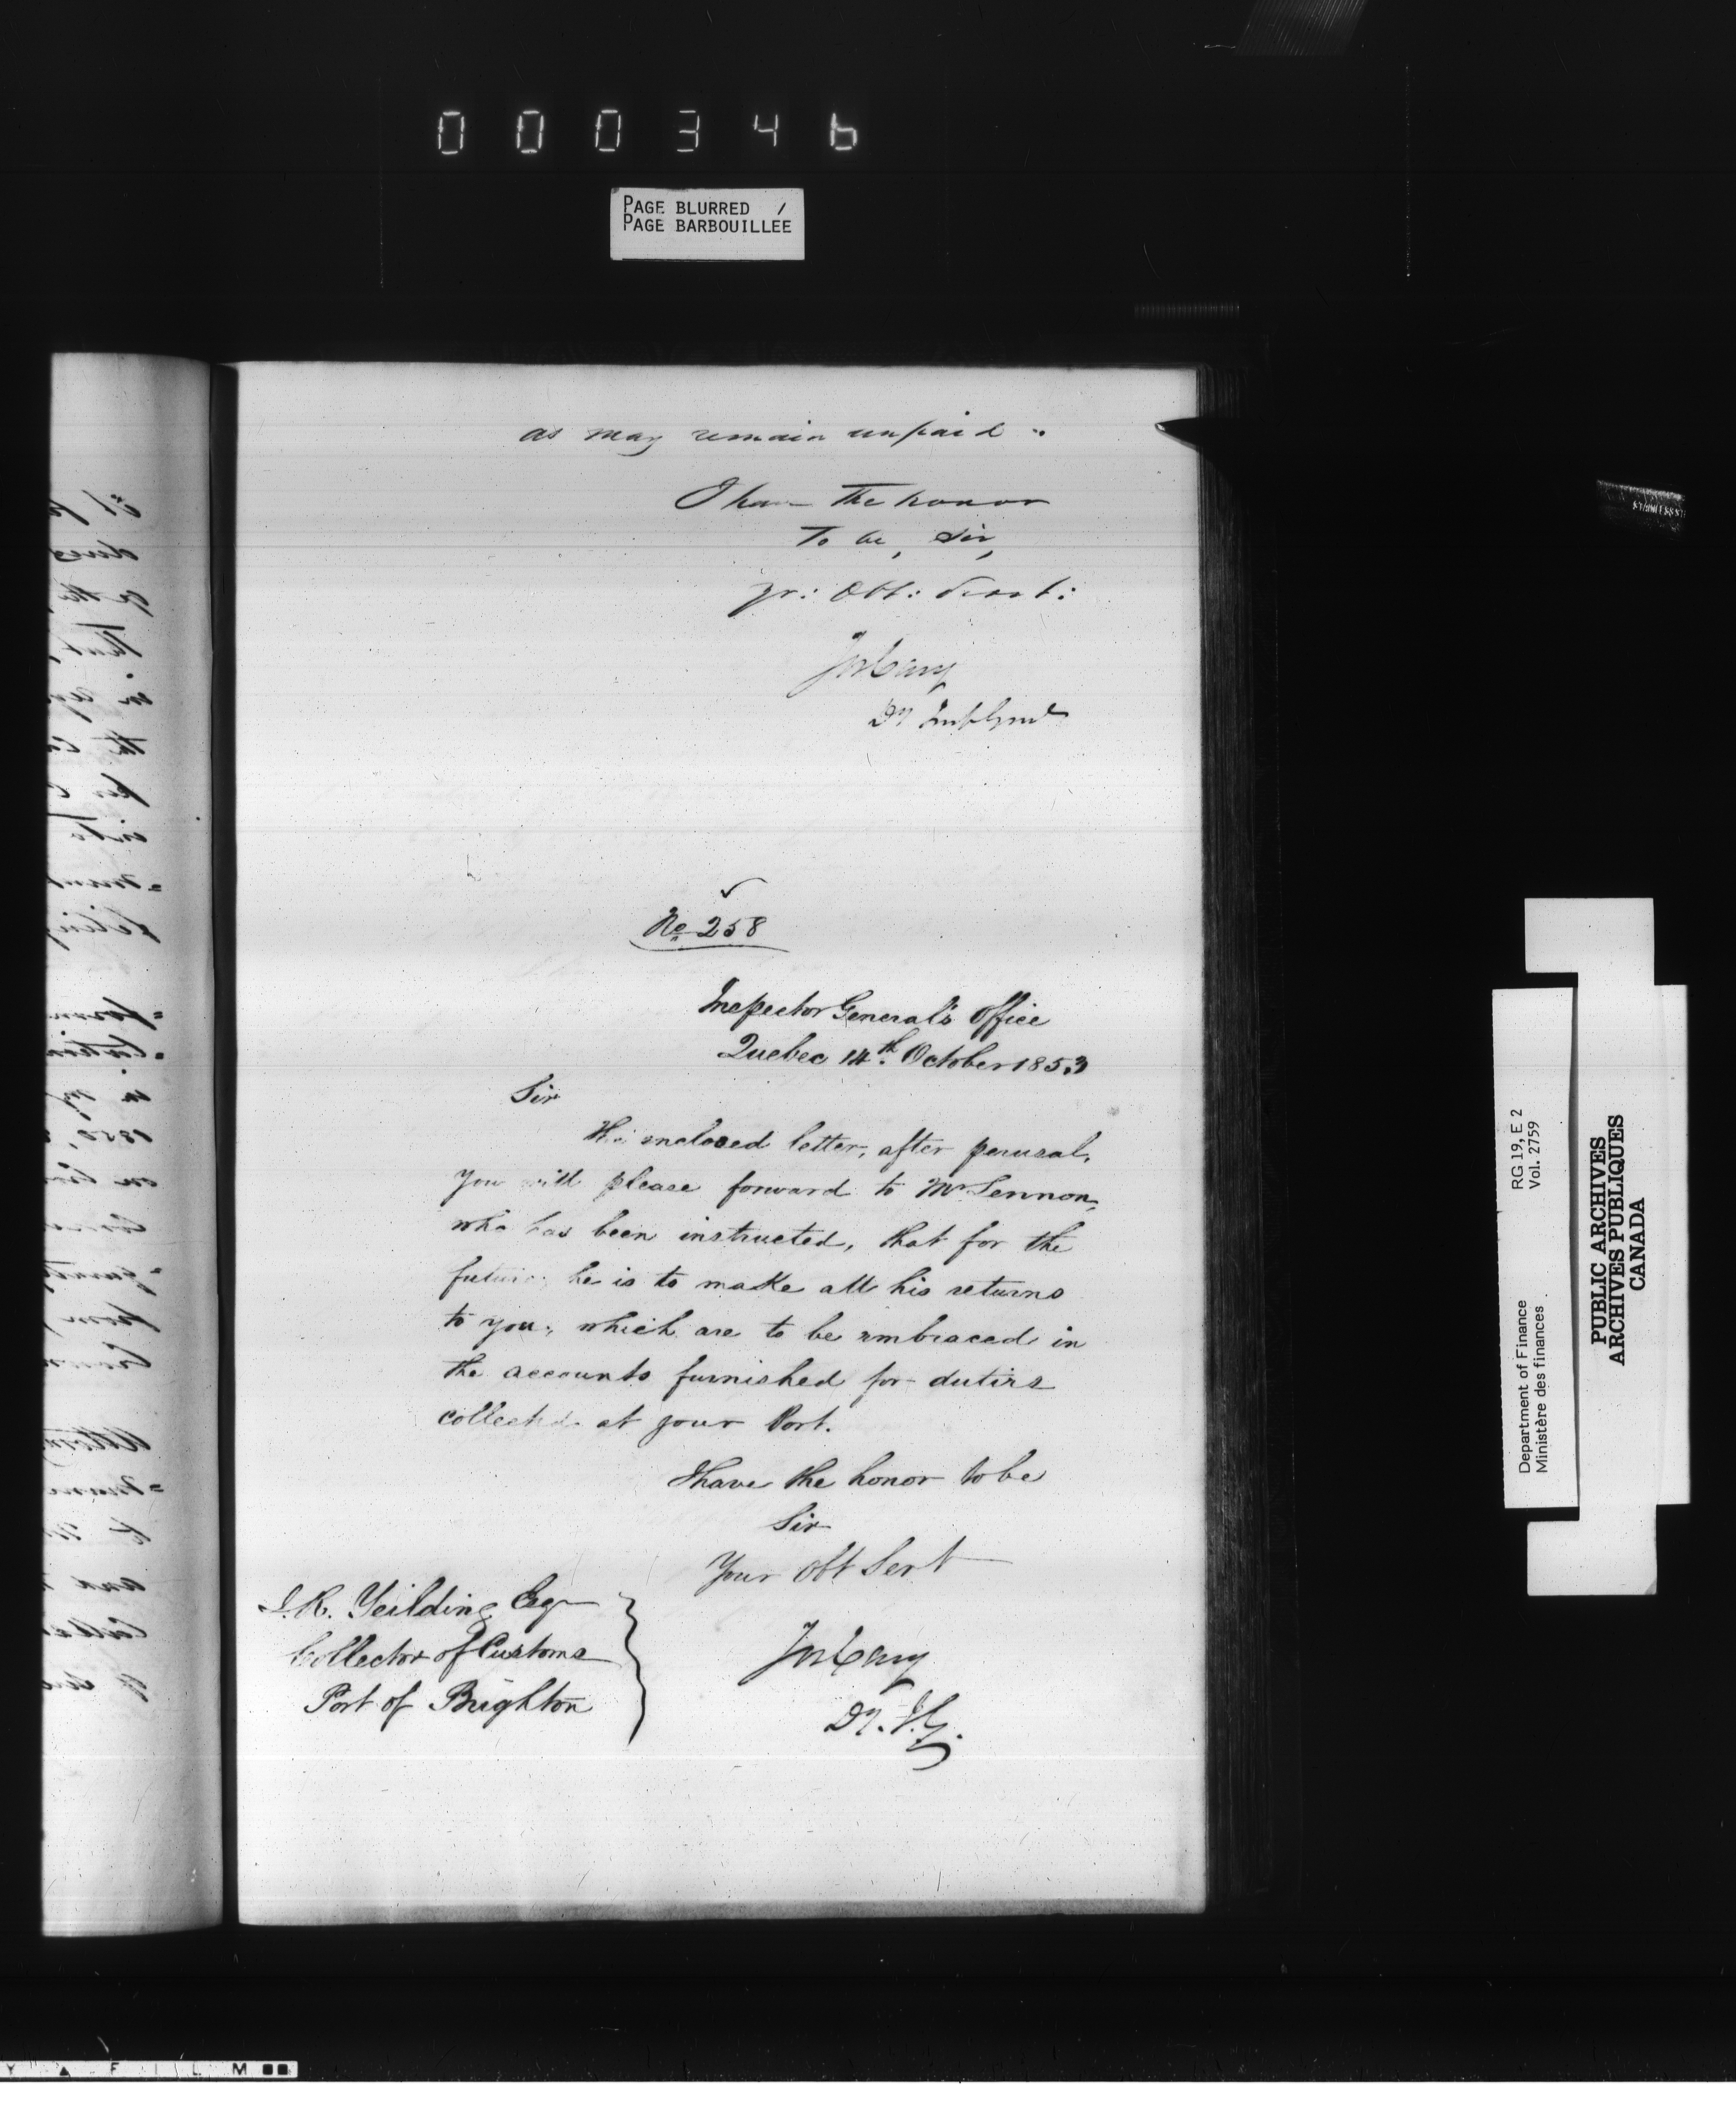 000346
PAGE BLURRED /
PAGE BARBOUILLEE
as may remain unpaid.
I have the honor
To be, Sir,
yr: Obt: Servt:
Jos Cary
Dy Insp Genl
No 258
Inspector General's Office
Quebec 14th. October 1853
Sir
The enclosed letter, after perusal,
you will please forward to Mr Lennon,
who has been instructed, that for the
future he is to make all his returns
to you, which are to be embraced in
the accounts furnished for duties
collected at your Port.
I have the honor to be
Sir
Your Obt Servt
J.R. Yeilding Esq
Collector of Customs
Port of Brighton
Jos Cary
Dy. I.G.
Department of Finance RG 19, E 2
Ministère des finances Vol. 2759
PUBLIC ARCHIVES
ARCHIVES PUBLIQUES
CANADA
FILM